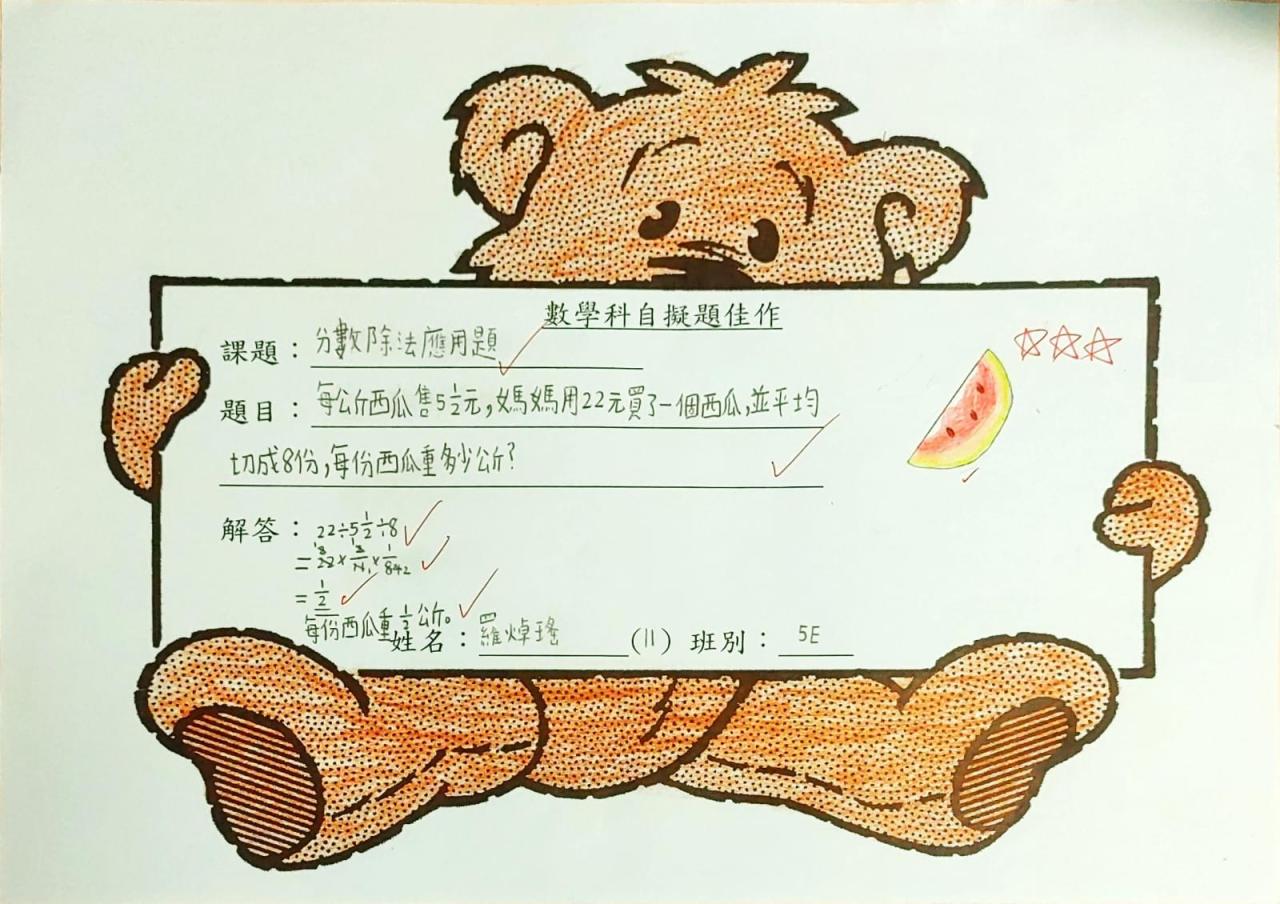 數學科自擬題佳作
課題：分數除法應用題
題目：每公斤西瓜售5½元，媽媽用22元買了一個西瓜，並平均
切成8份，每份西瓜重多少公斤？
解答：22÷5½÷8
= 22 × 2/11 × 1/8
= 1/2
每份西瓜重½公斤。
姓名：羅焯瑤 (11) 班別：5E